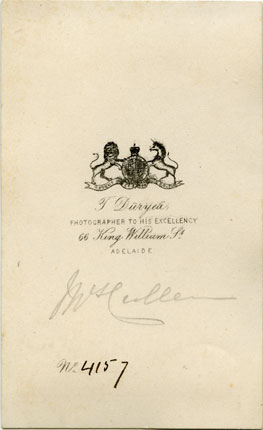 T Duryea
PHOTOGRAPHER TO HIS EXCELLENCY
66 King William St
ADELAIDE
No 4157